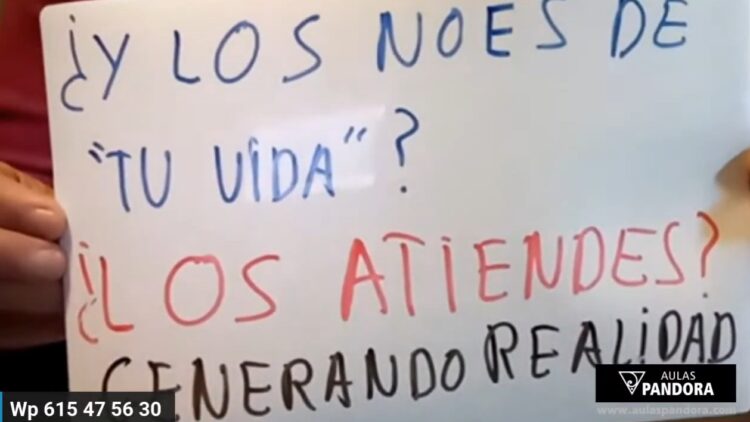 ¿Y LOS NOES DE
"TU VIDA"?
¿LOS ATIENDES?
GENERANDO REALIDAD
AULAS
PANDORA
www.aulaspandora.com
Wp 615 47 56 30